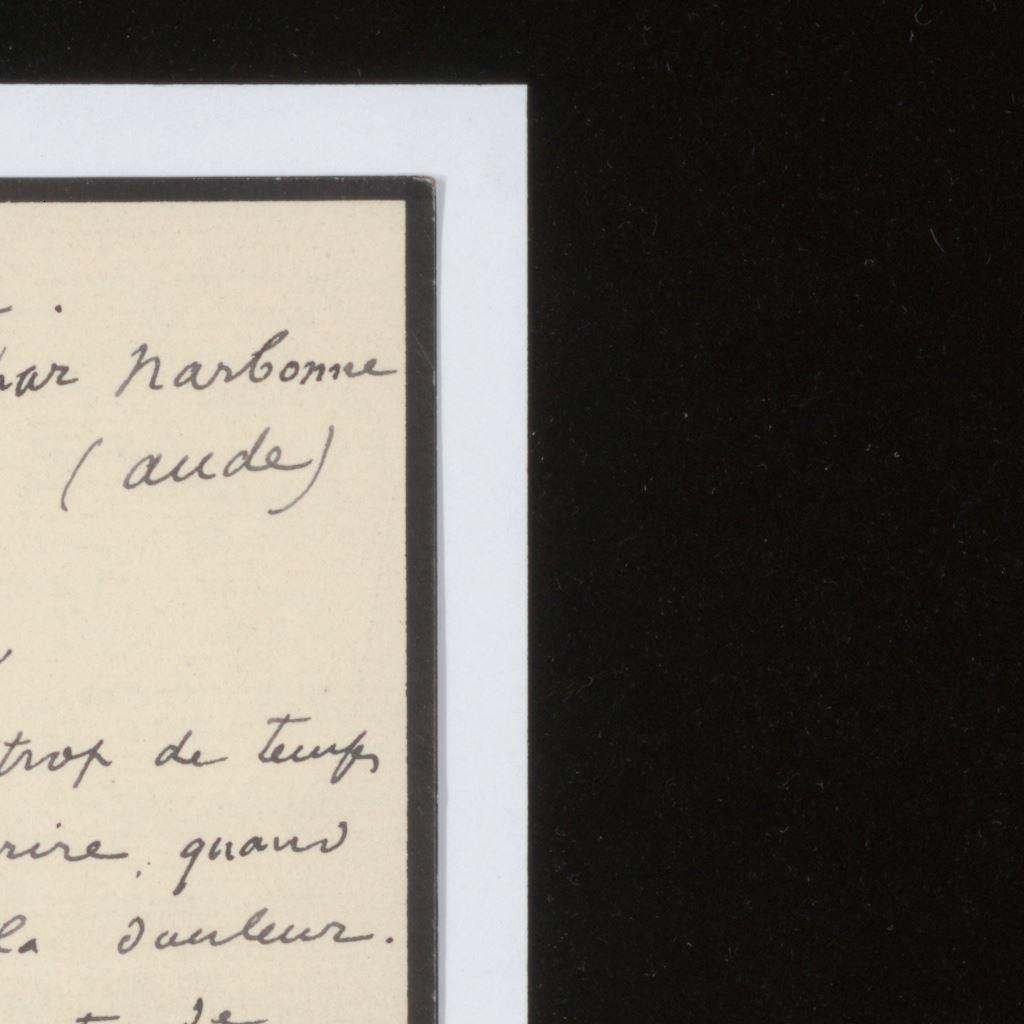 par Narbonne
(aude)
trop de temps
rire, quand
la douleur.
de